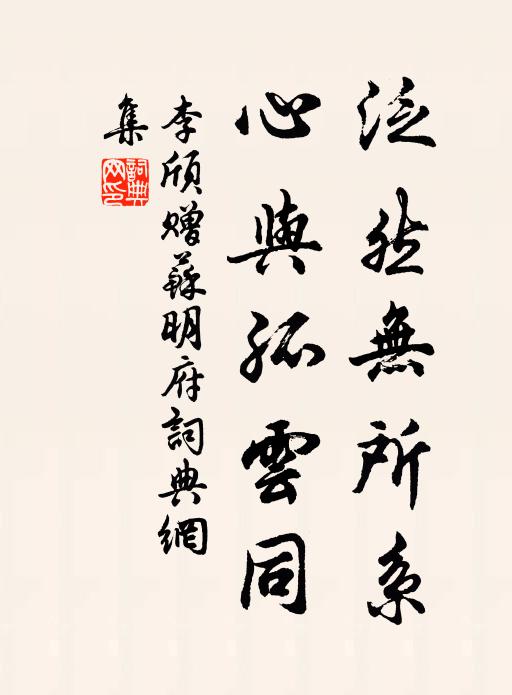 泛然無所系
心與孤雲同
李頎贈蘇明府詞典網
集
詞典
网印